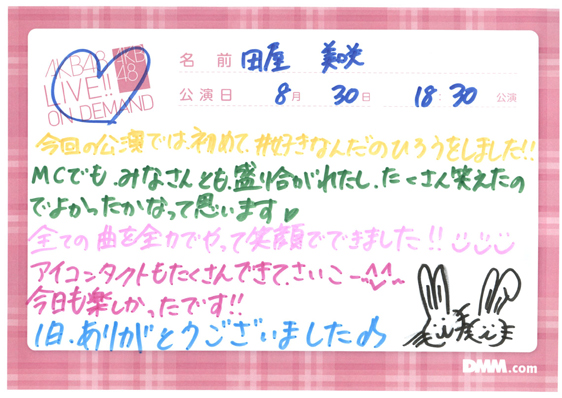 AKB48
LIVE!!
ON DEMAND
AKB
48
名前 田屋 美咲
公演日 8月 30日 18:30 公演
今回の公演では、初めて、#好きなんだのひろうをしました!!
MCでも、みなさんとも、盛り合がれたし、たくさん笑えたの
でよかったかなって思います♡
全ての曲を全力でやって笑顔でできました!!
アイコンタクトもたくさんできて、さいこー^^
今日も楽しかったです!!
1日、ありがとうございました♪
DMM.com